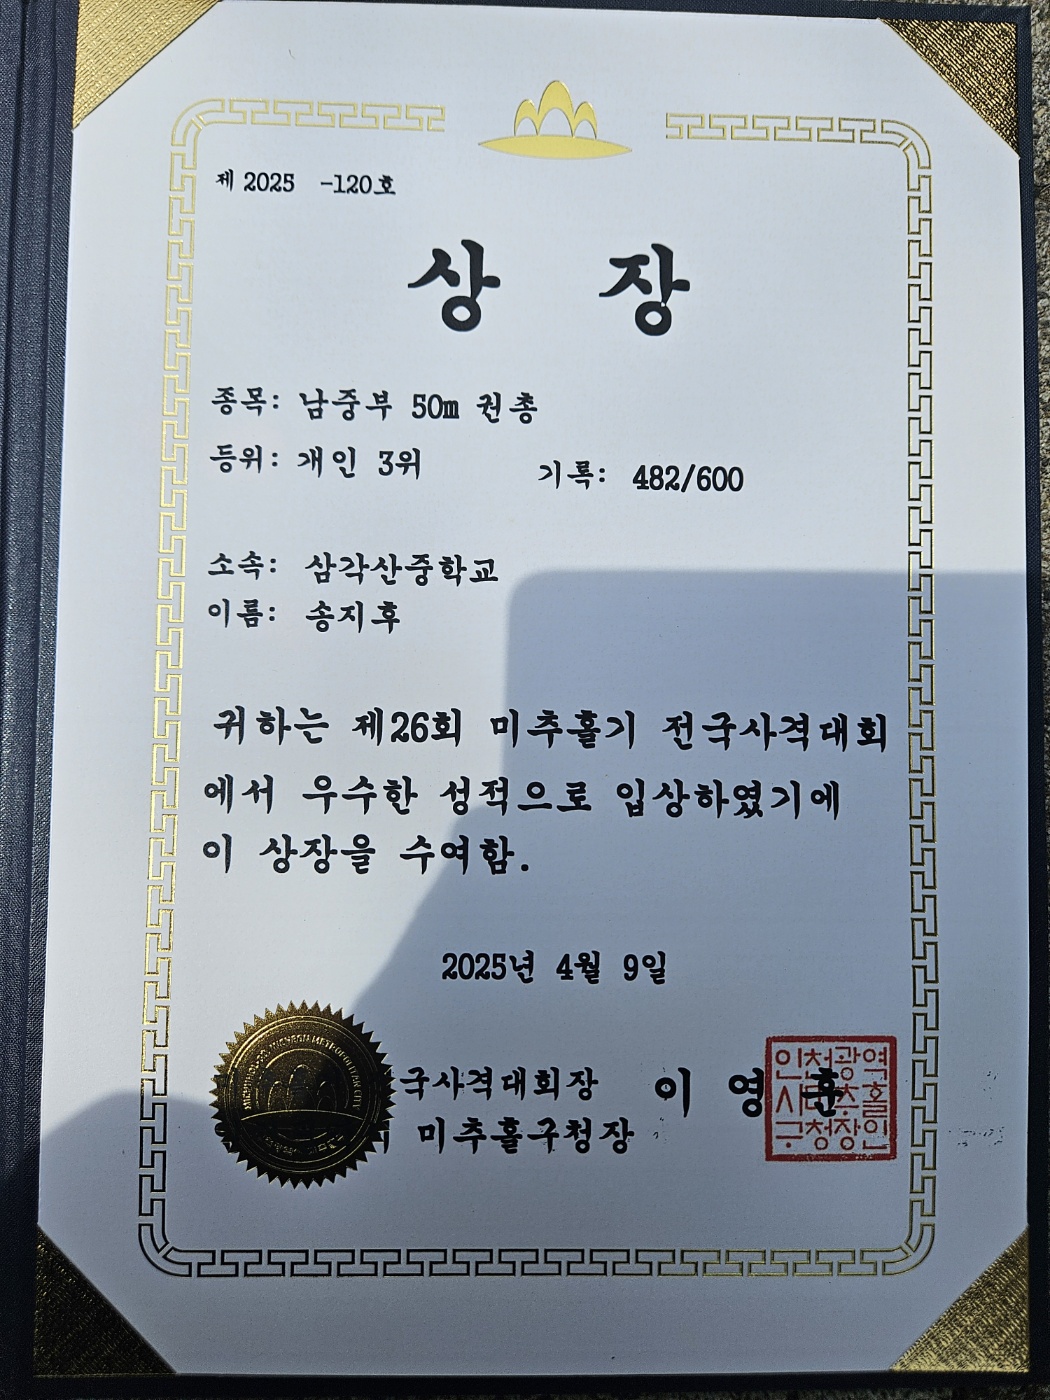 제 2025 -120호
상 장
종목: 남중부 50m 권총
등위: 개인 3위 기록: 482/600
소속: 삼각산중학교
이름: 송지후
귀하는 제26회 미추홀기 전국사격대회
에서 우수한 성적으로 입상하였기에
이 상장을 수여함.
2025년 4월 9일
국사격대회장 이 영 훈
미추홀구청장
인천광역
시미추홀
구청장인